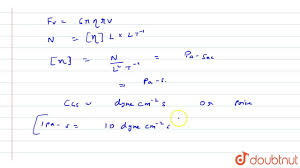 Fv = 6πηrv
N = [η] L × L T⁻¹
[η] = N / L² T⁻¹ = Pa-sec
= Pa-s.
CGS = dyne cm⁻² s or Poise
[1Pa-s = 10 dyne cm⁻² s
doubtnut